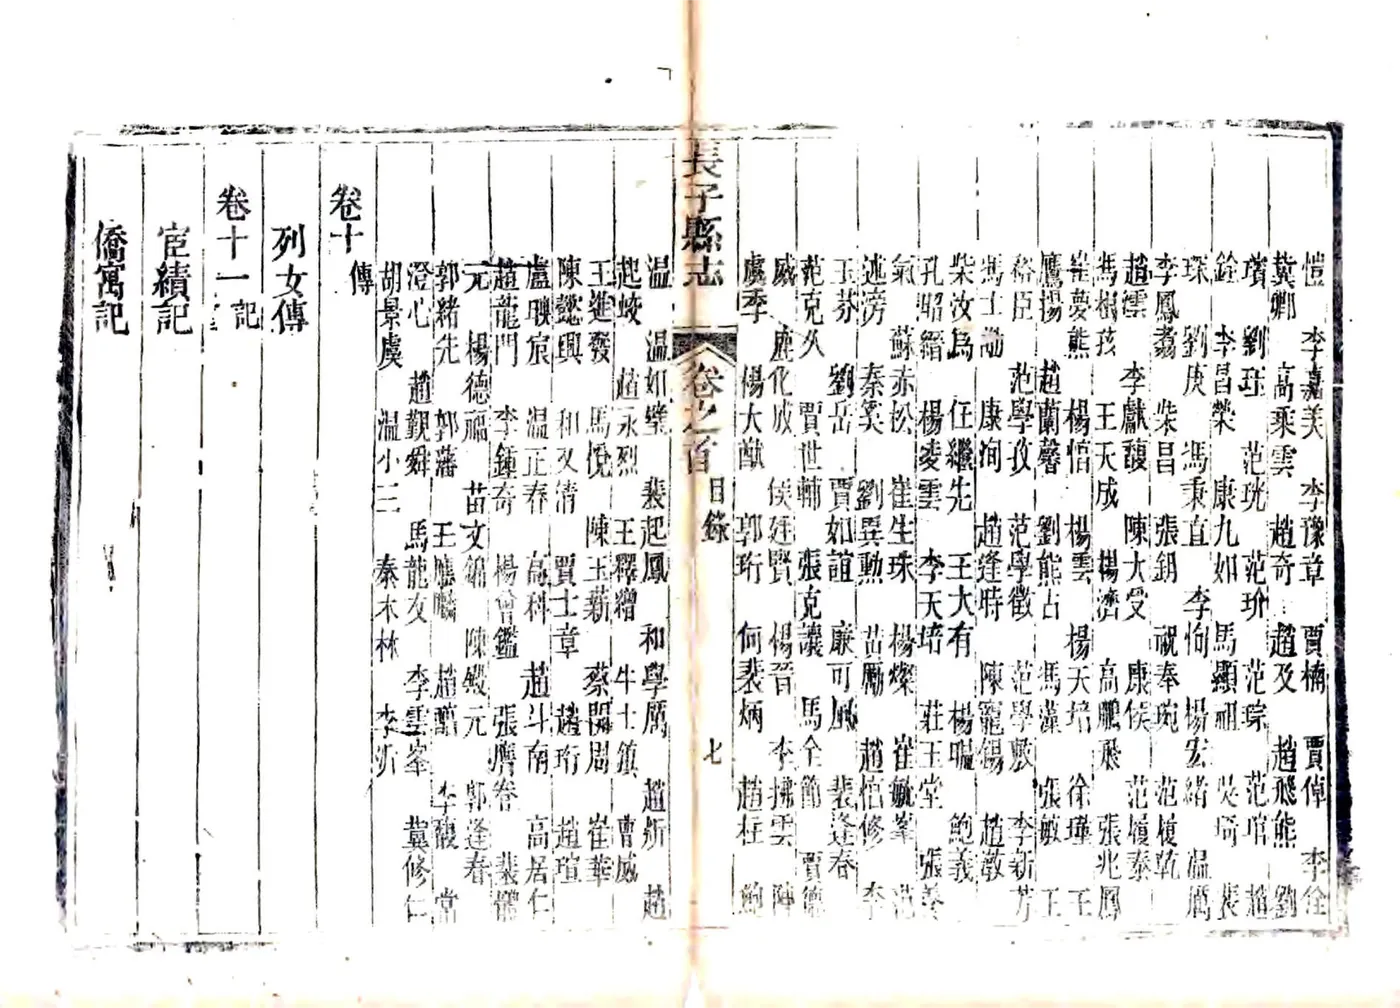 愷　李嘉美　李豫章　賈楠　賈倬　李銓
冀卿　高乘雲　趙奇　趙及　趙飛熊　劉
璸　劉珏　范珖　范玠　范琮　范琯　趙
銓　李昌榮　康九如　馬顯祖　吳琦　裴
琛　劉庚　馮秉直　李恂　楊宏緒　温厲
李鳳翥　柴昌　張鈅　祝奉琬　范履乾
趙霑　李獻馥　陳大受　康侯　范履泰
馮樹孩　王天成　楊濟　高鵬飛　張兆鳳
崔夢熊　楊愭　楊雲　楊天培　徐瑾　王
鷹揚　趙蘭馨　劉熊占　馮藻　張敏　王
裕臣　范學孜　范學徵　范學敷　李新芳
馮士瀚　康洵　趙逢時　陳寵錫　趙敦
柴汝爲　任繼先　王大有　楊暄　鮑義
孔昭縉　楊凌雲　李天培　莊玉堂　張善
氣　蘇赤松　崔生珠　楊燦　崔毓峯　范
述滂　秦奚　劉巽勳　苗勵　趙愃修　李
玉芬　劉岳　賈如誼　廉可風　裴逢春
范克久　賈世輔　張克讓　馬全節　賈德
威　鹿化成　侯廷賢　楊晉　李拂雲　陣
虞季　楊大猷　郭珩　何裴炳　趙柱　鮑
長子縣志　卷之首　目錄　七
温　温如瑩　裴起鳳　和學厲　趙炘　趙
起蛟　趙永烈　王釋繒　牛士鎮　曹威
王進發　馬悅　陳玉薪　蔡開周　崔華
陳懿興　和又清　賈士章　趙珩　趙瑄
盧聯宸　温正春　高科　趙斗南　高居仁
趙龍門　李鍾奇　楊曾鑑　張膺眷　裴懼
元　楊德福　苗文錦　陳毀元　郭逢春
郭緒先　郭藩　王應麟　趙醕　李馥　常
澄心　趙觀舜　馬龍友　李雲峯　冀修仁
胡景虞　温小三　秦木林　李炘
卷十　傳
列女傳
卷十一　記
宦績記
僑寓記